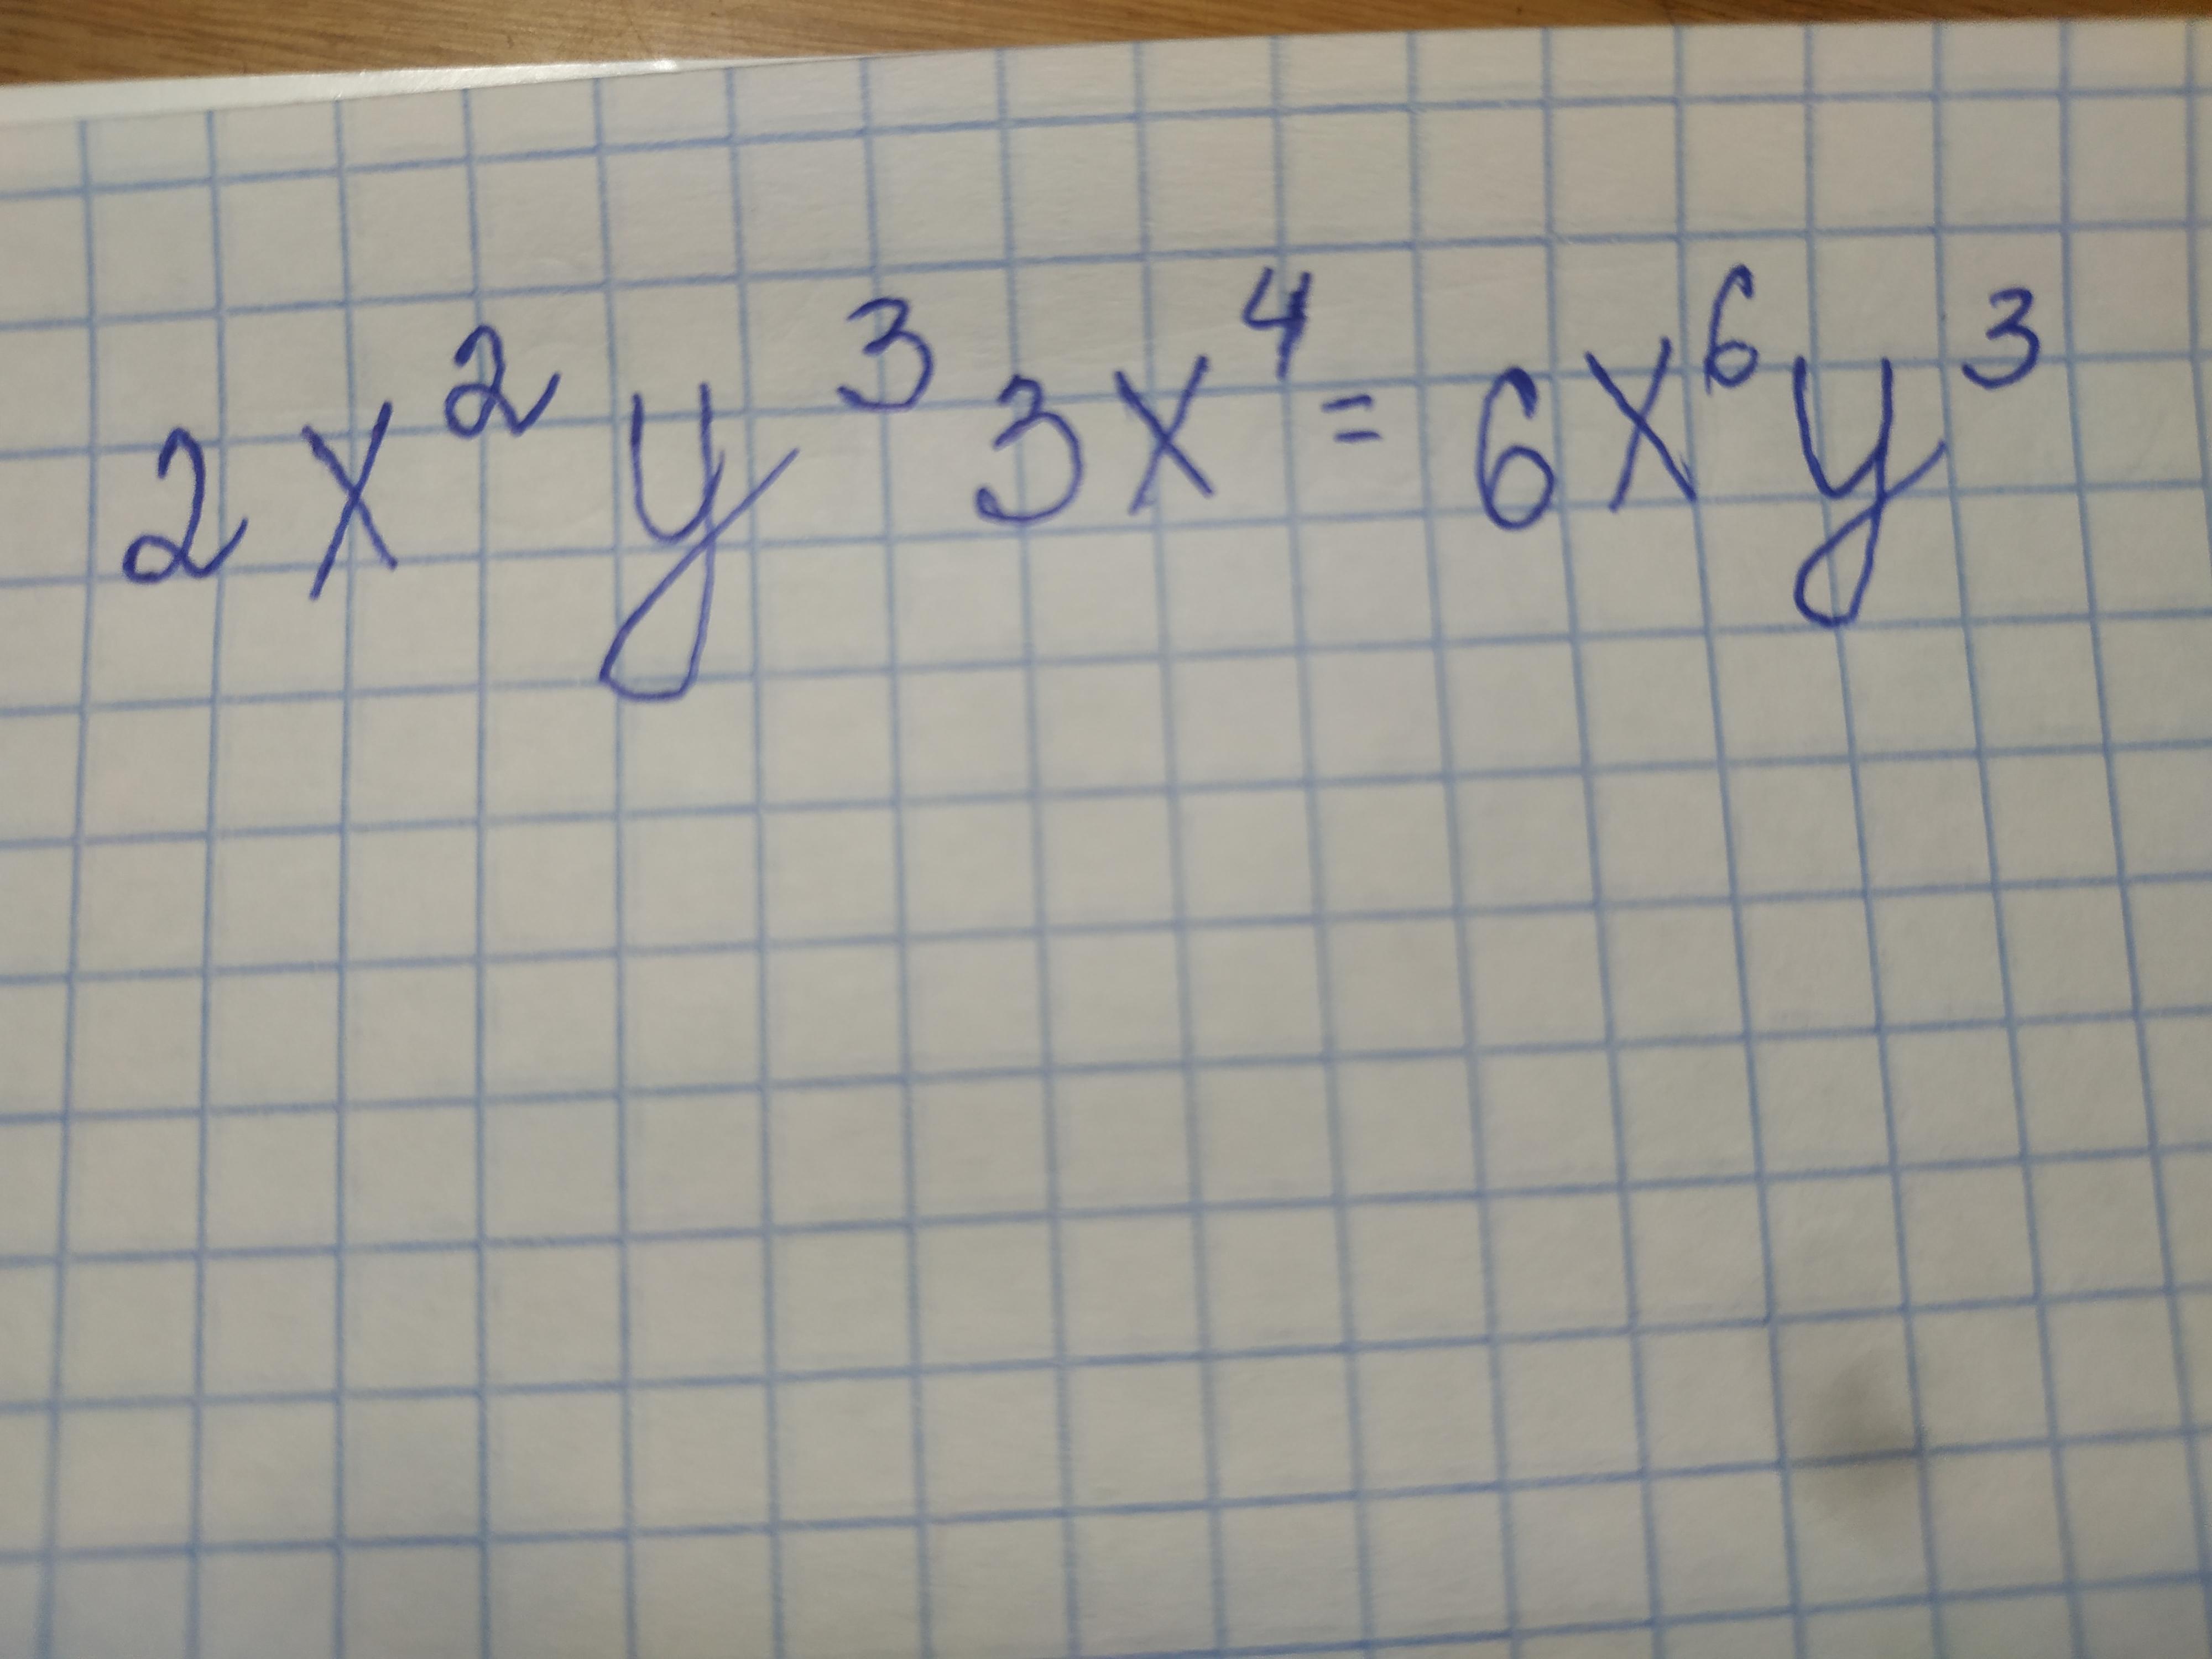 2x²y³3x⁴=6x⁶y³